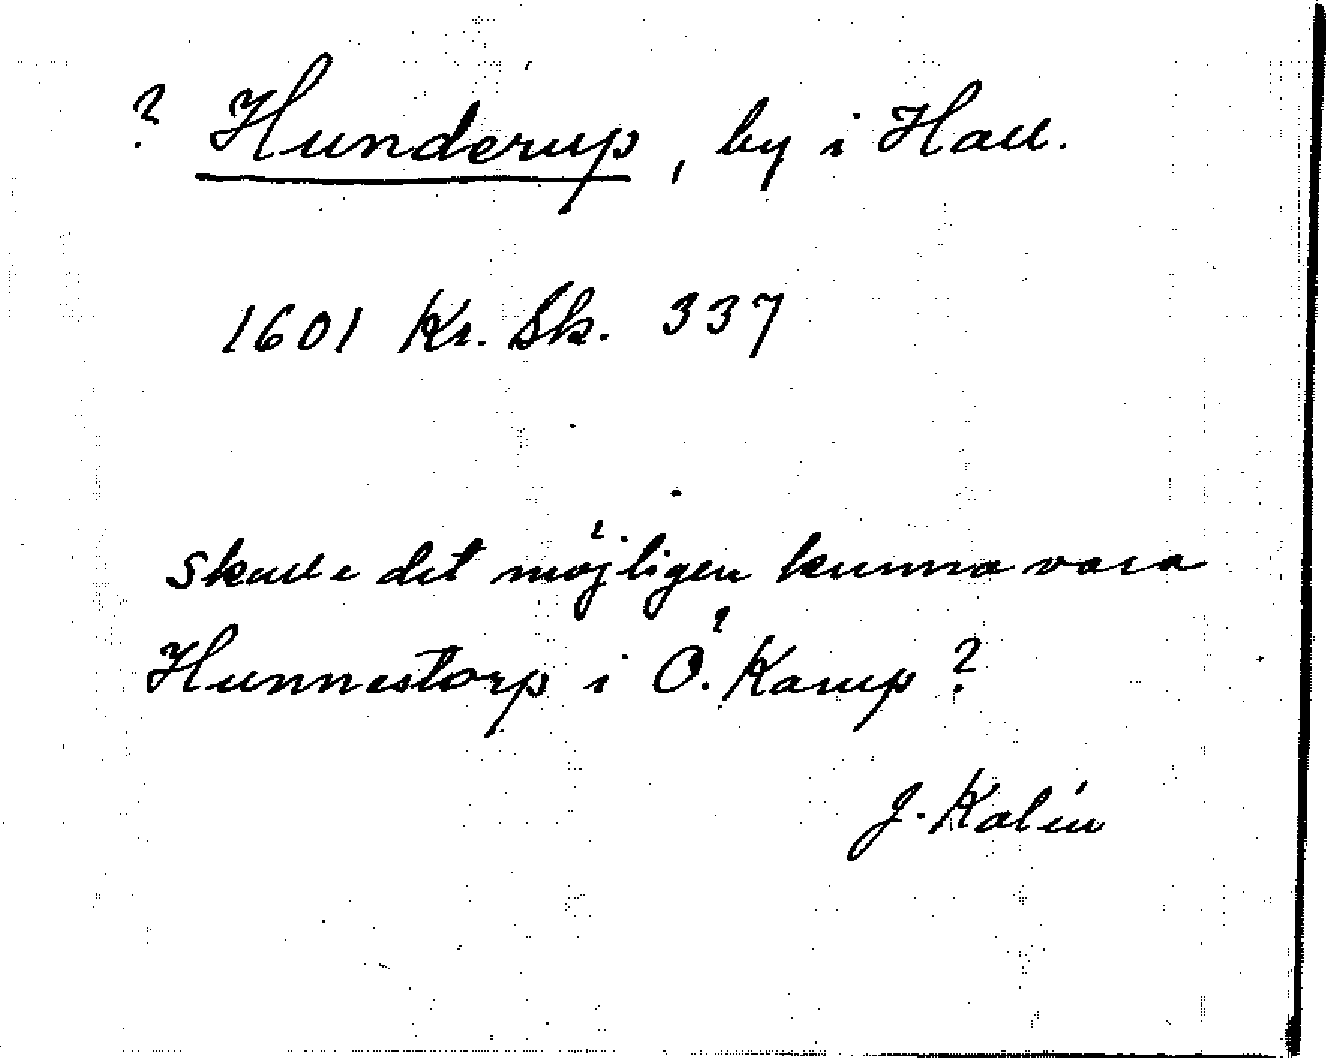 ? Hunderup, by i Hall.
1601 Kr. Sk. 337
Skulle det möjligen kunna vara
Hunnestorp i Ö. Karup?
J. Kalén